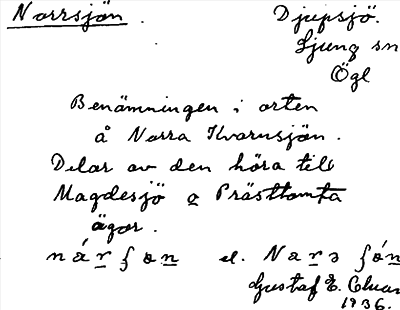 Norrsjön.
Djupsjö.
Ljung sn
Ögl
Benämningen i orten
å Norra Kvarnsjön.
Delar av den höra till
Magdesjö o Prästtomta
ägor.
el.
Gustaf E.
1936.